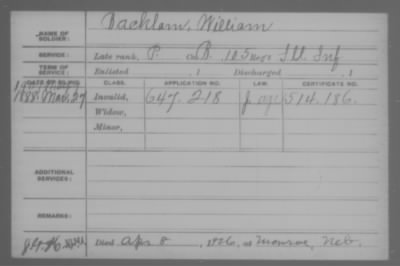 Backlam, William
NAME OF SOLDIER:
SERVICE: Late rank, P. Co. B. 105 Reg't Ill. Inf
TERM OF SERVICE: Enlisted , 1 Discharged , 1
DATE OF FILING. CLASS. APPLICATION NO. LAW. CERTIFICATE NO.
1888 Mar. 27 Invalid, 647.218 514.186.
Widow,
Minor,
ADDITIONAL SERVICES:
REMARKS:
Died Apr 8, 1926, at Monroe, Neb.